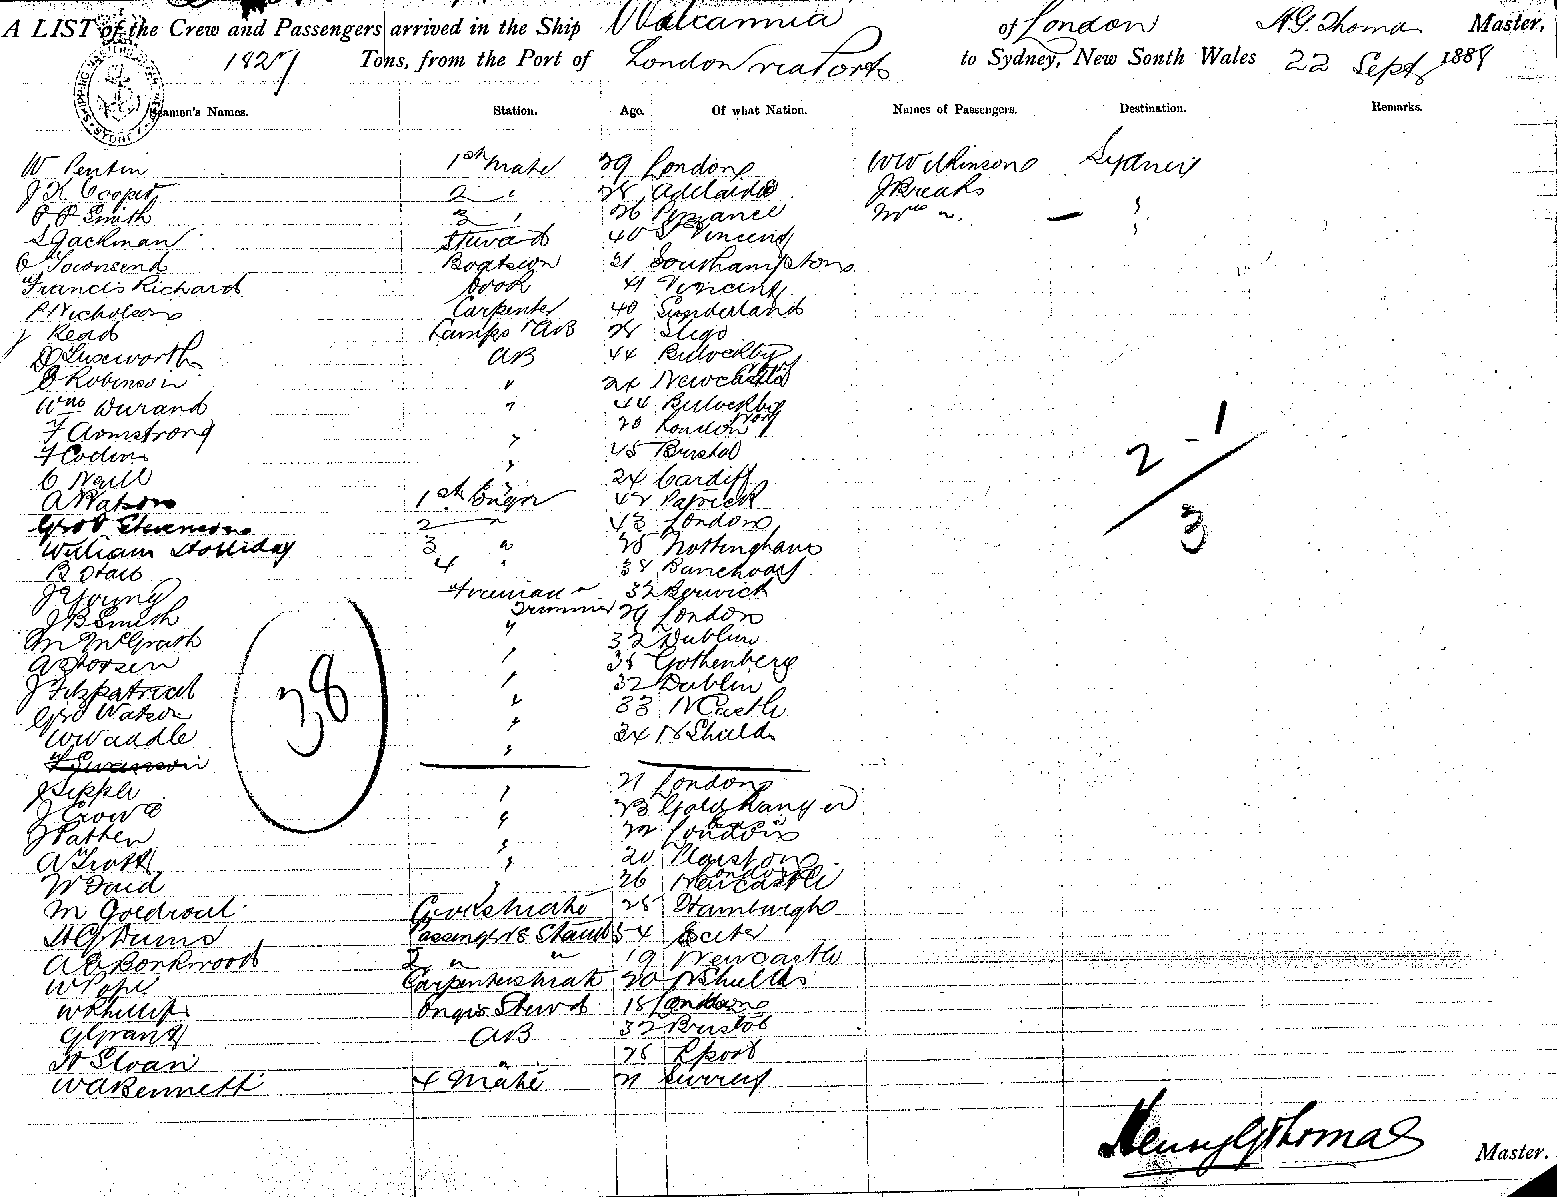 A LIST of the Crew and Passengers arrived in the Ship of London H.G. Thomas Master,
1827 Tons, from the Port of London via Ports to Sydney, New South Wales 22 Sept 188
Seamen's Names. Station. Age. Of what Nation. Names of Passengers. Destination. Remarks.
W Pentin 1st Mate 29 London W Wilkinson Sydney
J K Cooper 2 " 28 Adelaide J Breaks
P P Smith 3 " 26 Penzance Mrs " — "
S Jackman Steward 40 St Vincent
C Townsend Boatswn 21 Southampton
Francis Richard Cook 41 Vincent
P Nicholson Carpenter 40 Sunderland
J Read Lamps & AB 28 Sligo
D Luxworth AB 44
O Robinson " 24 Newcastle
Wm Durand " 44
F Armstrong 20 London
F Codin " 45 Bristol
C Neill " 24 Cardiff
A Watson 1st Engr 42 Patrick
Geo Stevenson 2 " 43 London
William Holliday 3 " 28 Nottingham
4 " 38
J Young Fireman & 32 Berwick
J B Smith Trimmer 29 London
M McGrath " 32 Dublin
" 38 Gothenberg
J Fitzpatrick " 32 Dublin
Geo Watson " 33 NCastle
W Waddle " 34 N Shields
Swanson "
J Sipple " 21 London
J Crowe " 23
J Patten " 22 London
A Trott " 20 Plaistow
W Daid " 26 Newcastle
M Goldraut Cooks Mate 25 Hamburgh
H G Dums Passengers Steward 54 Exeter
A E Borkwood 2 " " 19 Newcastle
W Pope Carpenters Mate 20 N Shields
W Phillips Engrs Steward 18 London
G Grant AB 32 Bristol
H Sloan " 25 Lpool
W A Bennett 4 Mate 21 Surrey
38
2 - 1
3
Henry G Thomas Master.